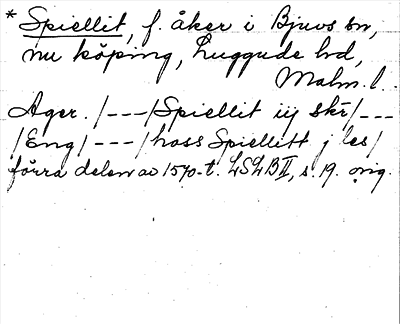 * Spiellit, f. åker i Bjuvs sn,
nu köping, Luggude hd,
Malm. l.
Ager. /---/ Spiellit iij skr /---
/Eng/ --- / hoss Spiellitt j les /
förra delen av 1570-t. LSLB II, s. 19. orig.